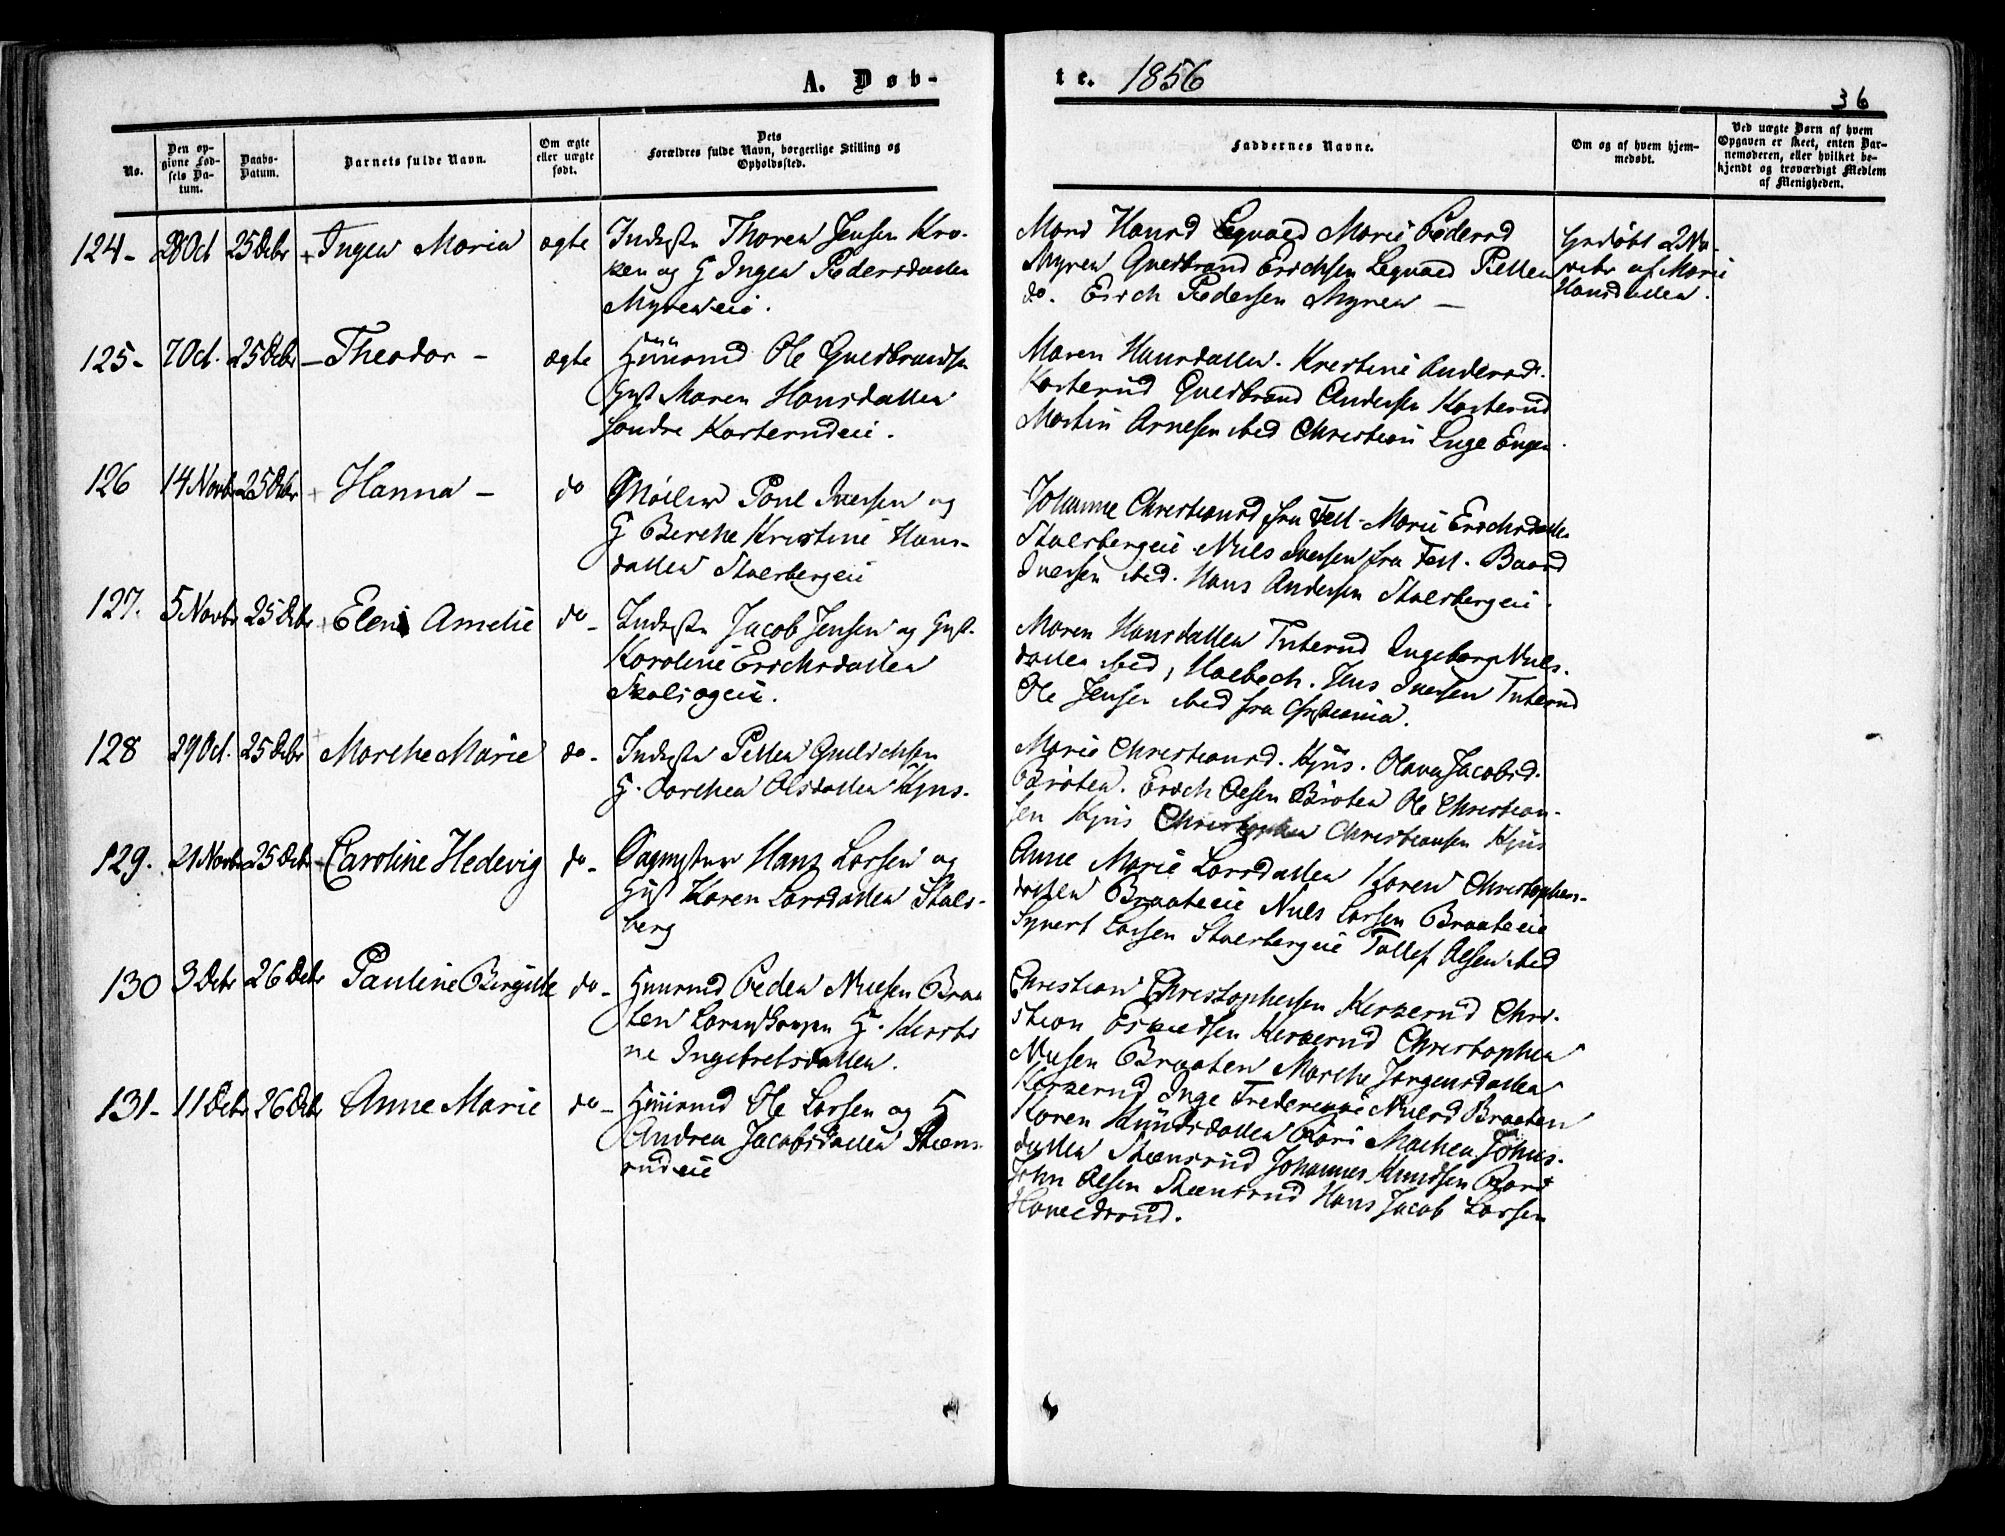 A. Døb-
te. 1856
36
No.
Den op-
givne Fød-
sels Da-
tum.
Daabs-
Datum.
Barnets fulde Navn.
Om ægte
eller uægte
født.
Dets
Forældres fulde Navn, borgerlige Stilling og
Opholdssted.
Faddernes Navne.
Om og af hvem hjem-
medøbt.
Ved uægte Børn af hvem
Opgaven er skeet, enten Bar-
nemoderen, eller hvilket be-
kjendt og troværdigt Medlem
af Menigheden.
124- 28 Oct 25 Decbr + Inger Maria ægte
Inderste Thoren Jensen Kro-
ken og H Inger Pedersdatter
Myreneie.
Mari Hansd Legvold Marie Pedersd
Myren Guldbrand Erichsen Legvold Petter
do. Erich Pedersen Myren -
Hjedøbt 2 No-
vebr af Marie
Hansdatter.
125- 7 Oct. 25 Decbr - Theodor - ægte
Huusmd Ole Guldbrandsen
Hust Maren Hansdatter
Søndre Korterudeie.
Maren Hansdatter. Kristine Andersd.
Korterud Guldbrand Andersen Korterud
Martin Arnesen ibid Christian Engen
126 14 Novbr 25 Decbr + Hanna - do
Møller Poul Iversen og
H Berthe Kristine Hans-
datter Stalsbergeie
Johanne Christiansd fra Fett - Marie Erichsdatter
Stalsbergeie Niels Iversen fra Fett. Baard
Iversen ibid. Hans Andersen Stalsbergeie.
127. 5 Novbr 25 Decbr + Eleni Amelie do -
Inderste Jacob Jensen og Hust.
Karoline Erichsdatter
Maren Hansdatter Tuterud Ingeborg Niels-
datter ibid, Holbech. Jens Iversen Tuterud
Ole Jensen ibid fra Christiania.
128 29 Oct. 25 Decbr Marthe Marie do -
Inderste Petter Gulichsen
H. Dorthea Olsdatter Kjus.
Marie Christiansd. Kjus. Olava Jacobsd.
Bröten. Erich Olsen Bröten Ole Christian-
sen Kjus Christopher Christiansen Kjus
129. 21 Novbr 25 Decbr Caroline Hedevig do -
Hans Larsen og
Hust Karen Larsdatter Stals-
berg
Anne Marie Larsdatter Karen Christophers-
datter Braateeie Niels Larsen Braateeie
Syvert Larsen Stalsbergeie Tollef Olsen ibid
130 3 Decbr 26 Decbr Pauline Birgitte do -
Huusmd Peder Nielsen Braa
ten H. Kirsti
ne Ingebretsdatter.
Christian Christophersen Kerzerud Chri-
stian Eskildsen Kerzerud Christopher
Nielsen Braaten Marthe Jørgensdatter
Kerzerud Inge Frederikke Nielsd Braaten
131- 11 Decbr 26 Decbr Anne Marie do -
Huusmd Ole Larsen og H
Andrea Jacobsdatter Steens-
rudeie
Karen Knudsdatter Mathea Johns-
datter Steensrud Johannes Knudsen
John Olsen Steensrud Hans Jacob Larsen
Holmedsrud.